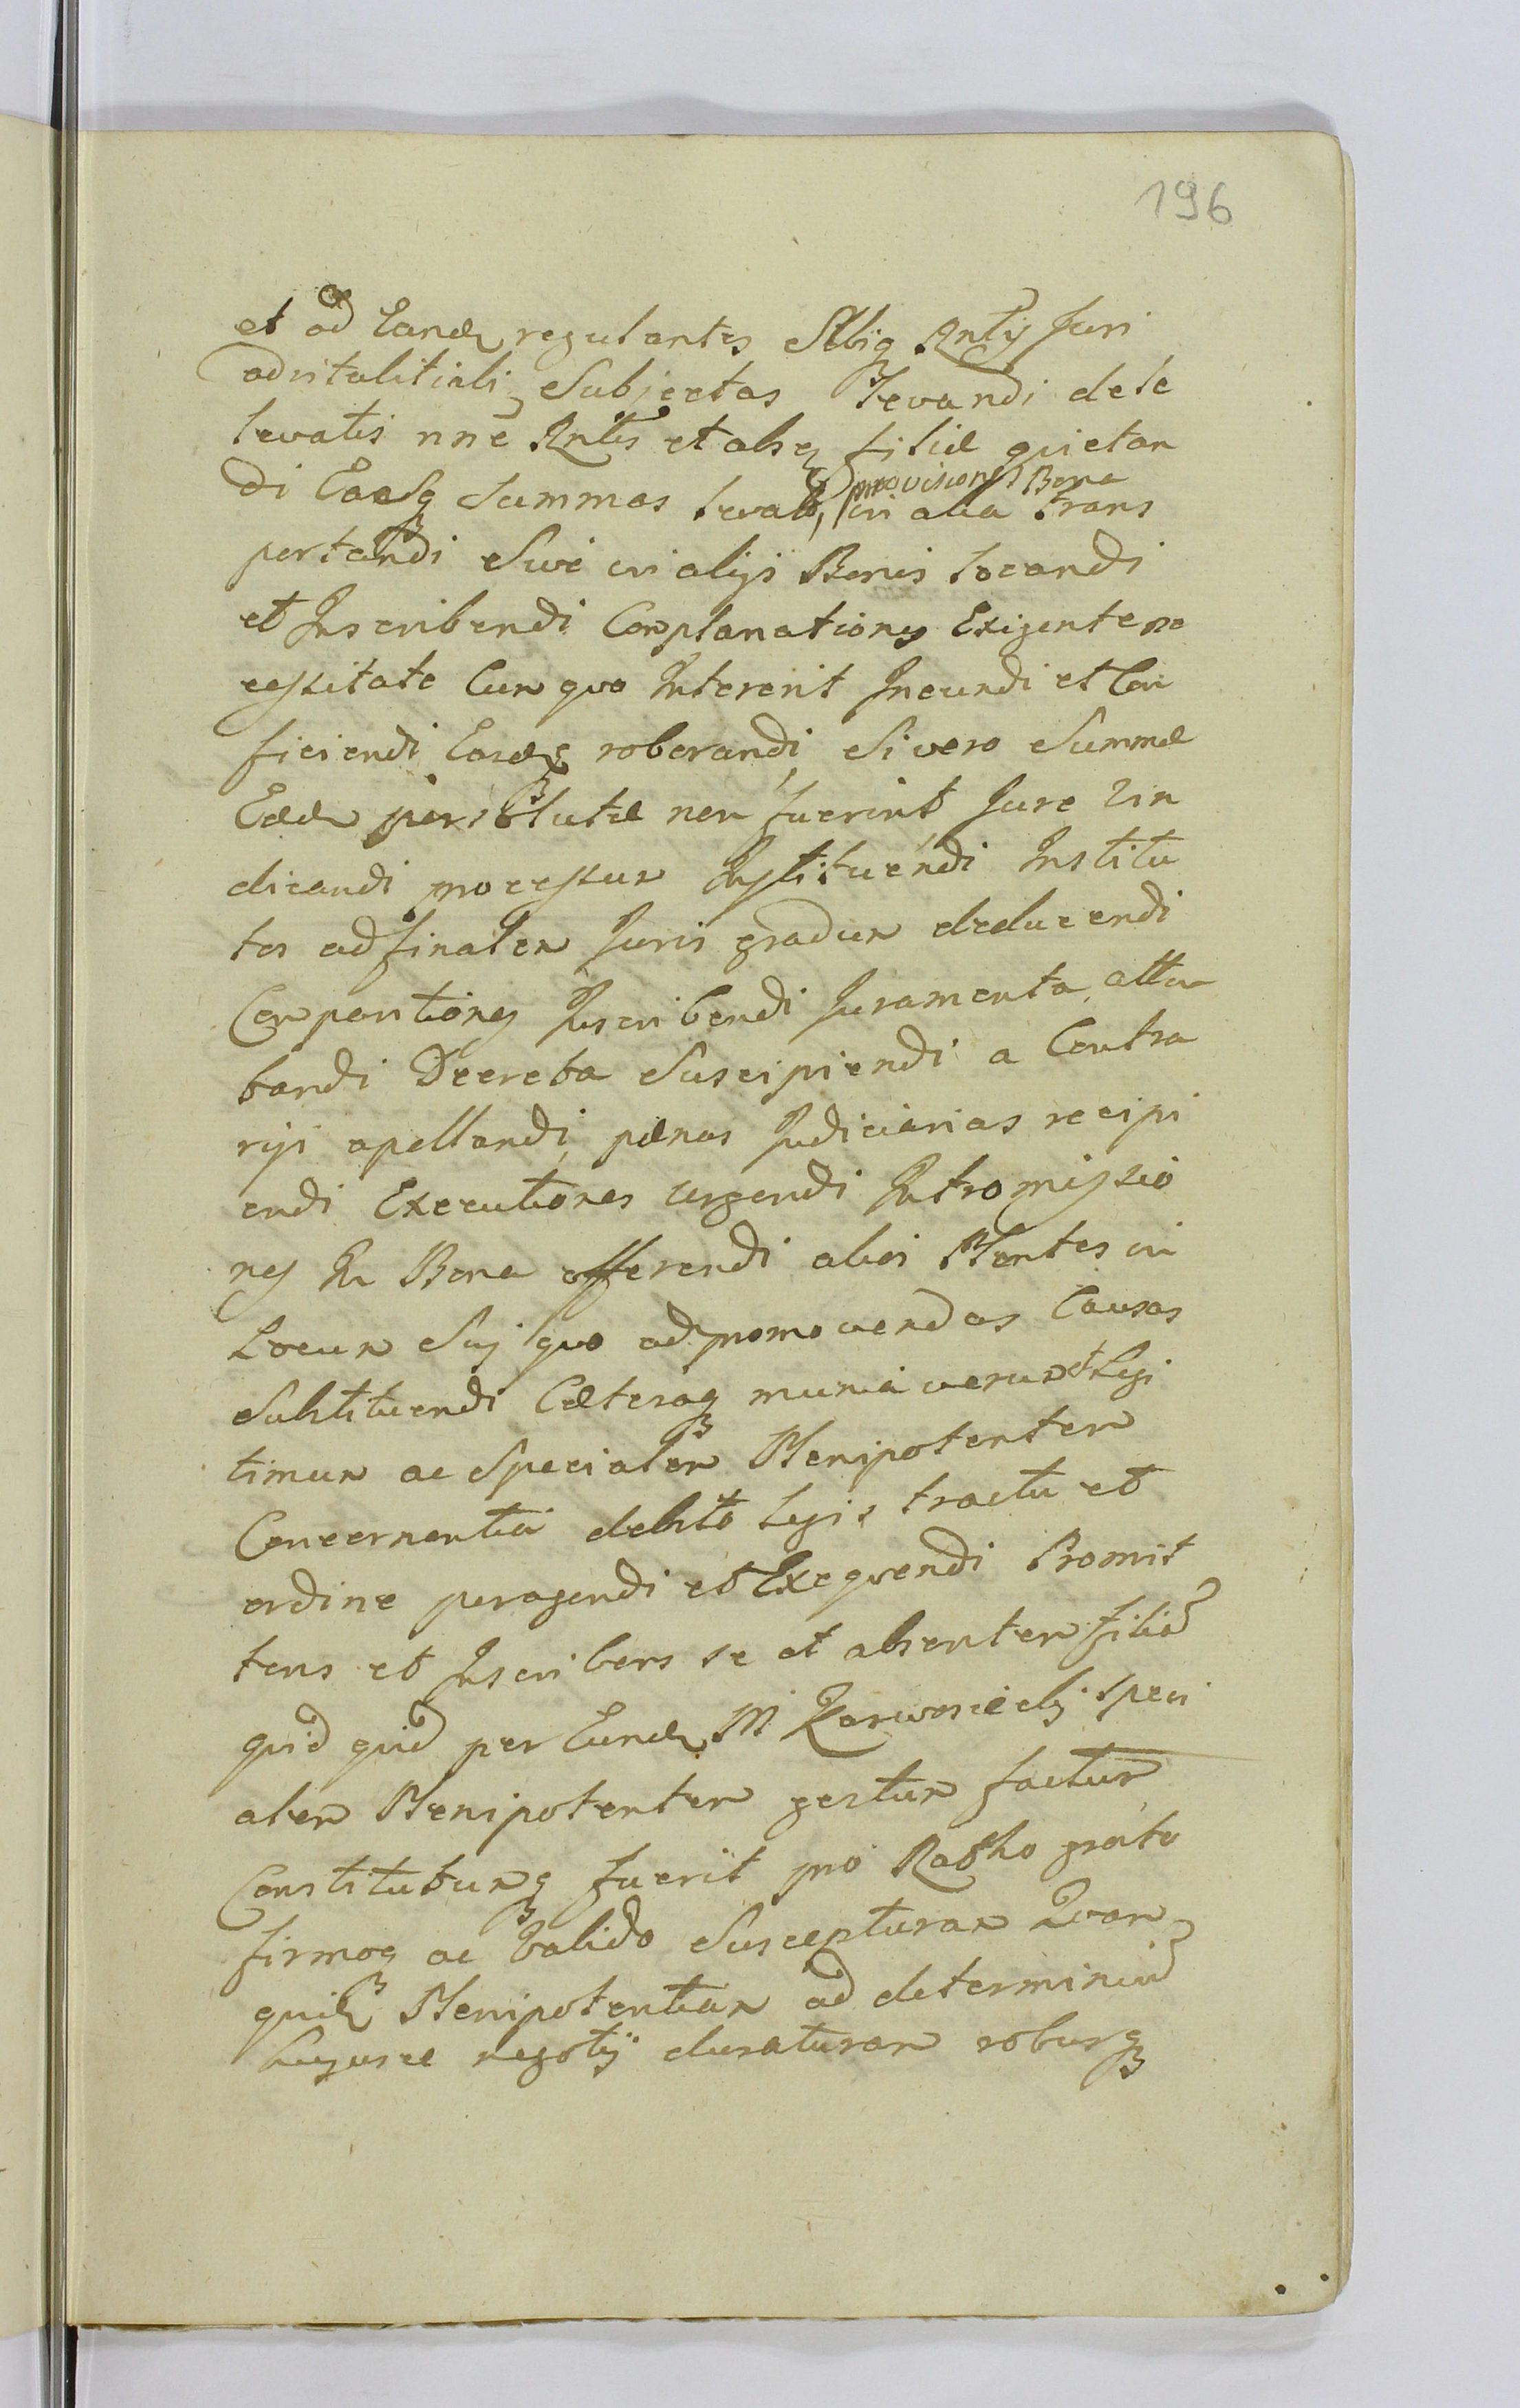 196
et ad Eand regulantes Sibiq Rntis Juri
advitalitiali Subjectas levandi de le
levatis nne Rntis et absq filiæ quietan
provisiones Bona
di Easq Summas levatas, in alia trans
portandi Sive in alijs Bonis locandi
et Inscribendi Complanationes Exigente ne
cessitate Cum quo Intererit Ineundi et Con
ficiendi Easdq roborandi Si vero Summæ
Eæd persolutæ non fuerint Jure Vin
dicandi processum Instituendi Institu
tos ad finalem Juris gradum deducendi
Comparitiones Inscribendi Juramenta attu
bandi Decreta Suscipiendi a Contra
rijs apellandi, pænas Judiciarias recipi
endi Executiones urgendi Intromissio
nes In Bona offerendi alios Plentes in
Locum Sui quo ad promovendas Causas
Substituendi Cæteraq munia verum et Legi
timum ac Specialem Plenipotentem
Concernentia debito Legis tractu et
ordine peragendi et Exequendi Promit
tens et Inscribens se et absentem filia
quid quid per Eund M Karwosiecki speci
alem Plenipotentem gestum factum
Constitutumq fuerit pro Ratho grato
firmoq ac Valido Suscepturam Quam
quid Plenipotentiam ad determinium
hujusce negotij duraturam roburq